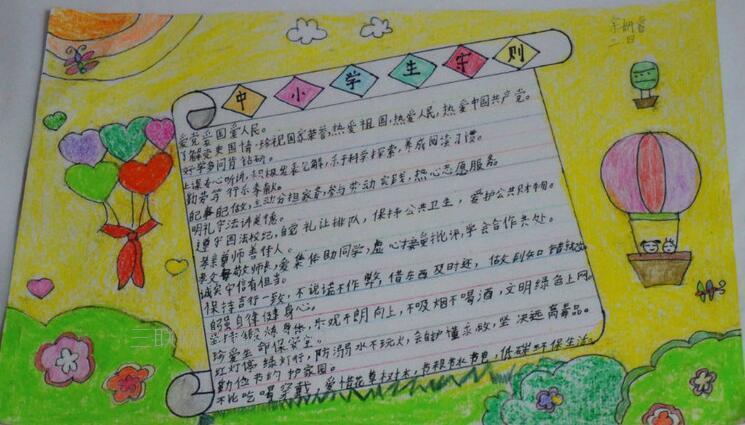 中小学生守则
爱党爱国爱人民。
了解党史国情,珍视国家荣誉,热爱祖国,热爱人民,热爱中国共产党。
好学多问肯钻研。
上课专心听讲,积极发表见解,乐于科学探索,养成阅读习惯。
勤劳笃行乐奉献。
自己事自己做,主动分担家务,参与劳动实践,热心志愿服务
明礼守法讲美德。
遵守国法校纪,自觉礼让排队,保持公共卫生,爱护公共财物。
孝亲尊师善待人。
孝父母敬师长,爱集体助同学,虚心接受批评,学会合作共处。
诚实守信有担当。
保持言行一致,不说谎不作弊,借东西及时还,做到知错就改
自强自律健身心。
坚持锻炼身体,乐观开朗向上,不吸烟不喝酒,文明绿色上网。
珍爱生命保安全。
红灯停绿灯行,防溺水不玩火,会自护懂求救,坚决远离毒品。
勤俭节约护家园。
不比吃喝穿戴,爱惜花草树木,节粮节水节电,低碳环保生活。
三联